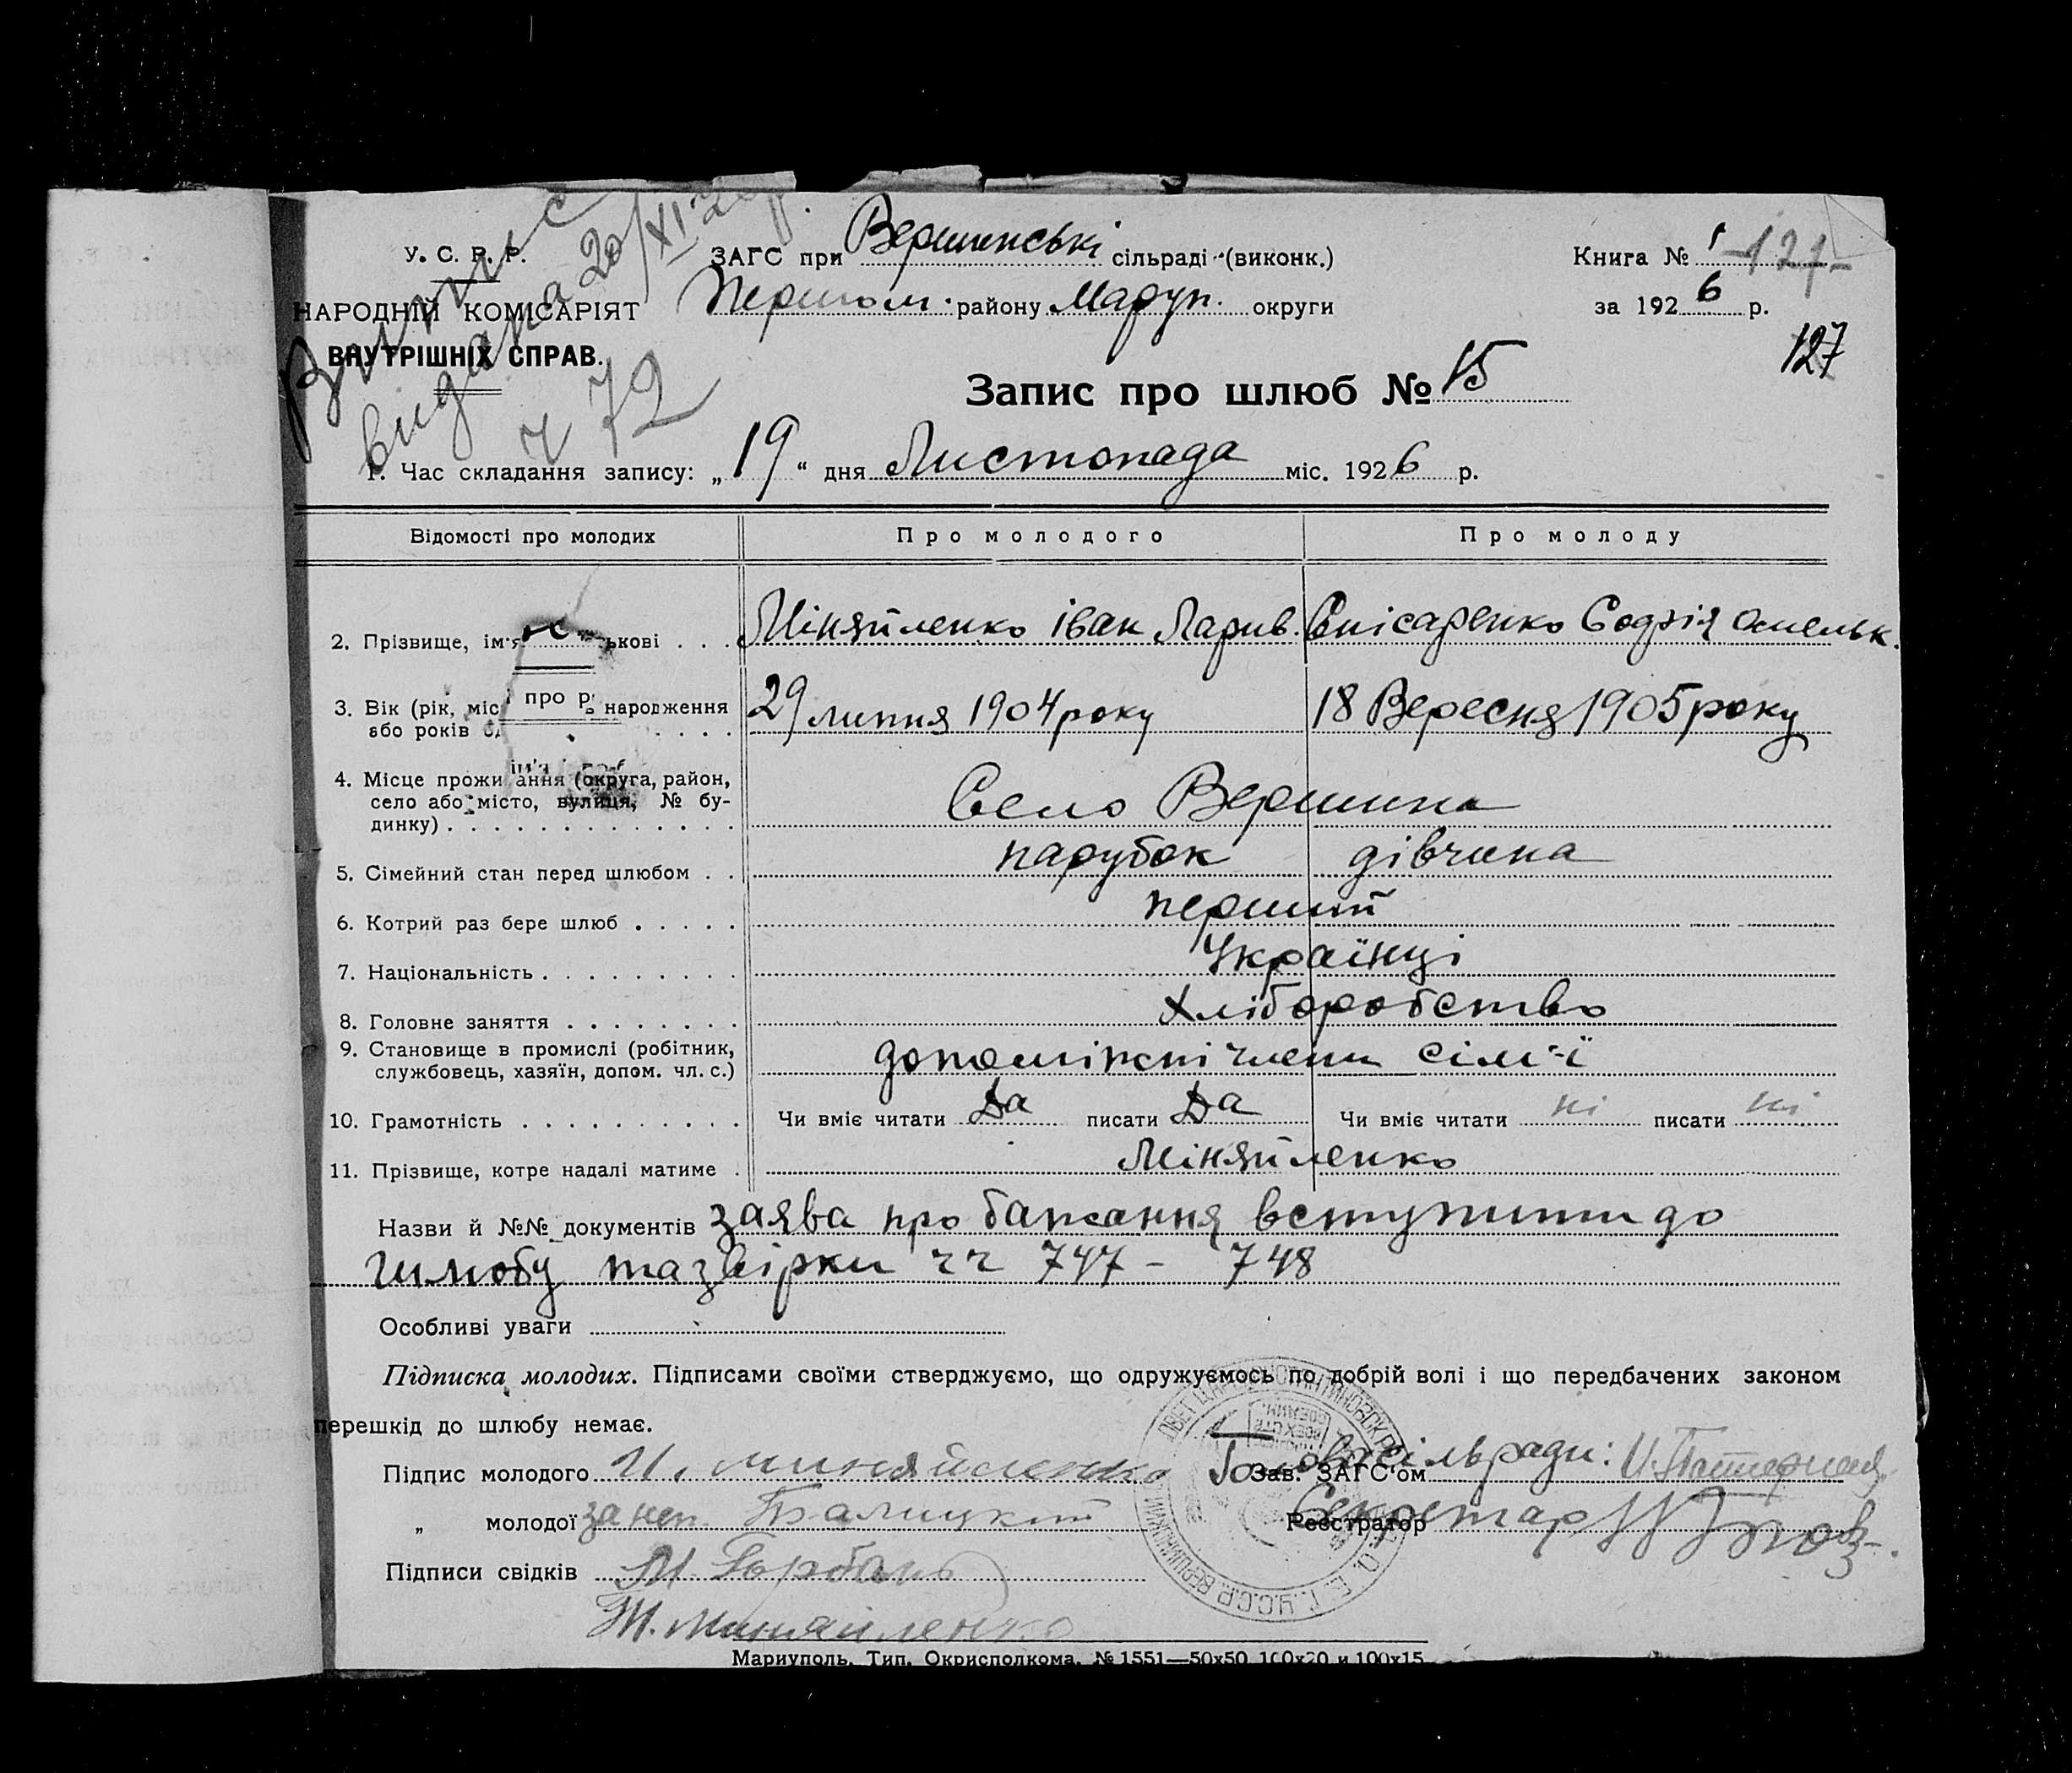 У. С. Р. Р.
НАРОДНІЙ КОМІСАРІЯТ
ВНУТРІШНІХ СПРАВ.
Витис
видана 20/XI 26р.
ч 72
ЗАГС при Вершинські сільраді (виконк.)
Першом. району Маруп. округи
Книга № 1 -127-
за 1926 р.
127
Запис про шлюб № 15
1. Час складання запису: „19“ дня Листопада міс. 1926 р.
Відомості про молодих Про молодого Про молоду
2. Прізвище, ім'я ькові . . . Міняйленко Іван Ларив. Снісаренко Софія Омельк.
3. Вік (рік, міс народження 29 липня 1904 року 18 Вересня 1905 року
або років
про р
4. Місце прожи ання (округа, район,
село або місто, вулиця, № бу-
динку) . . . Село Вершина
5. Сімейний стан перед шлюбом . . парубок дівчина
6. Котрий раз бере шлюб . . . . . перший
7. Національність . . . . . . . . . Українці
8. Головне заняття . . . . . . . . Хліборобство
9. Становище в промислі (робітник,
службовець, хазяїн, допом. чл. с.) допоміжні члени сім'ї
10. Грамотність . . . . . . . . . . Чи вміє читати Да писати Да Чи вміє читати ні писати ні
11. Прізвище, котре надалі матиме . Міняйленко
Назви й №№ документів заява про бажання вступити до
шлюбу та звірки чч 747 - 748
Особливі уваги
Підписка молодих. Підписами своїми стверджуємо, що одружуємось по добрій волі і що передбачених законом
перешкід до шлюбу немає.
Підпис молодого И. Миняйленко
Зав. ЗАГС'ом Голова сільради:
„ молодої за неп. Балицкий
Реєстратор Секретар
Підписи свідків М. Горбань
Т. Миняйленко
Мариуполь. Тип. Окрисполкома. № 1551—50х50, 100х20 и 100х15